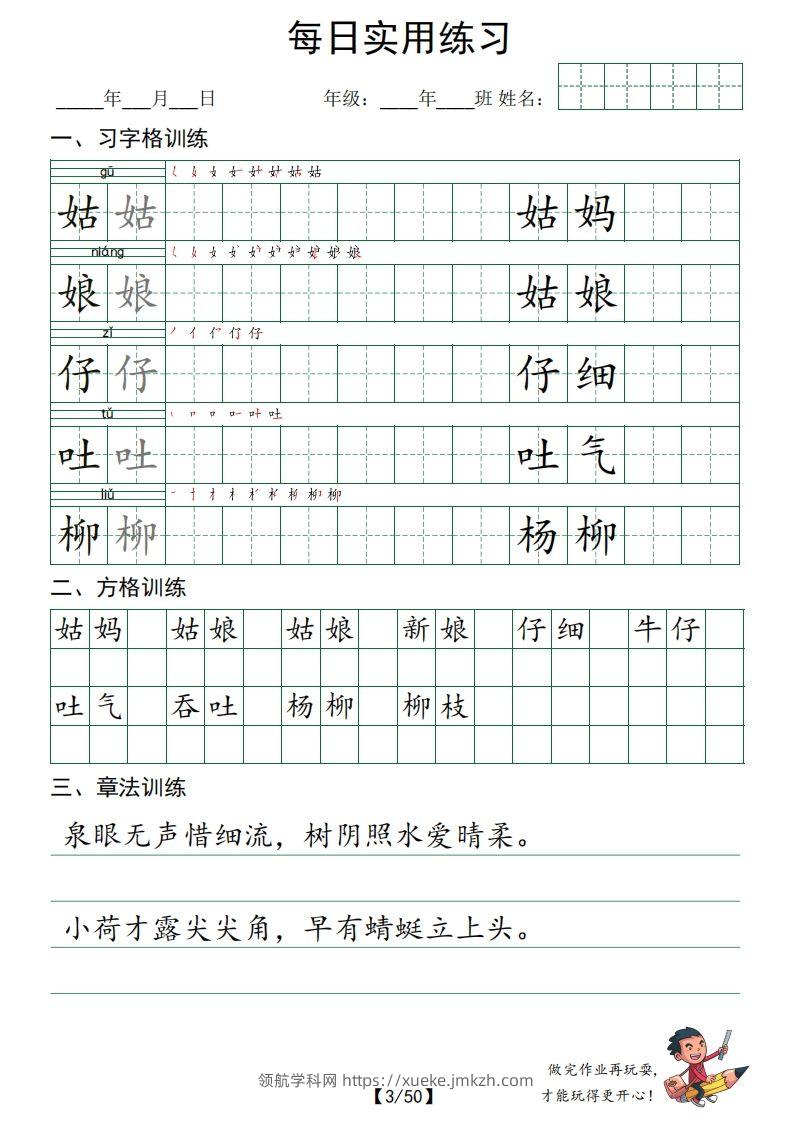 每日实用练习
_____年___月___日 年级：____年____班 姓名：
一、习字格训练
gū
姑 姑 姑 妈
niáng
娘 娘 姑 娘
zǐ
仔 仔 仔 细
tǔ
吐 吐 吐 气
liǔ
柳 柳 杨 柳
二、方格训练
姑妈 姑娘 姑娘 新娘 仔细 牛仔
吐气 吞吐 杨柳 柳枝
三、章法训练
泉眼无声惜细流，树阴照水爱晴柔。
小荷才露尖尖角，早有蜻蜓立上头。
做完作业再玩耍，
才能玩得更开心！
领航学科网 https://xueke.jmkzh.com
【3/50】